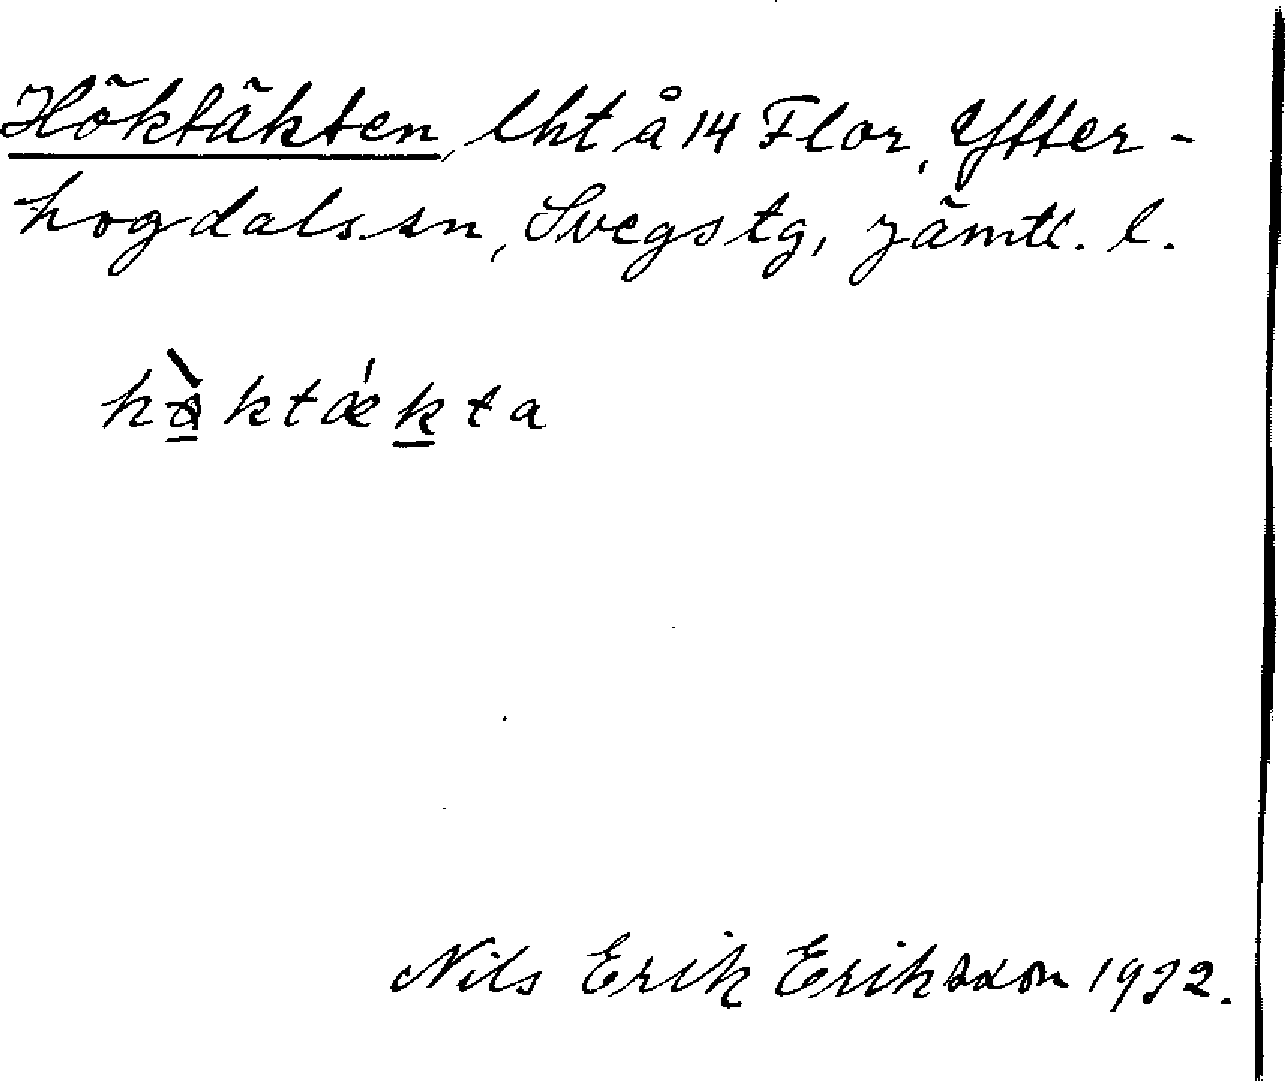 Höktäkten, lht å 14 Flor, Ytter-
hogdals sn, Svegs tg, Jämtl. l.
hò̱ktǽḵta
Nils Erik Eriksson 1932.